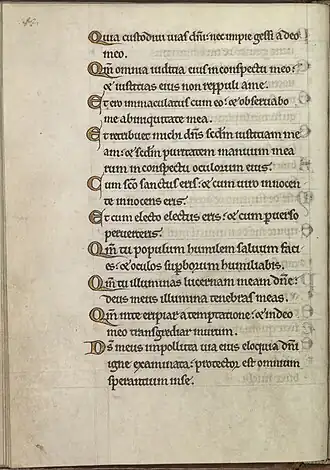 Quia custodivi uias dñi: nec impie gessi a deo
meo.
Qm̃ omnia iudicia eius in conspectu meo:
et iusticias eius non reppuli a me.
Et ero inmaculatus cum eo: et obseruabo
me ab iniquitate mea.
Et retribuet michi dñs scd̃m iusticiam me
am: et scd̃m puritatem manuum mea
rum in conspectu oculorum eius.
Cum sc̃o sanctus eris: et cum uiro innocen
te innocens eris.
Et cum electo electus eris: et cum p̱uerso
peruerteris.
Qm̃ tu populum humilem saluum faci
es: et oculos sup̱borum humiliabis.
Qm̃ tu illuminas lucernam meam dñe:
deus meus illumina tenebras meas.
Qm̃ in te eripiar a temptatione: et in deo
meo transgrediar murum.
Ds̃ meus impolluta uia eius eloquia dñi
igne examinata: protector est omnium
sperantium in se.